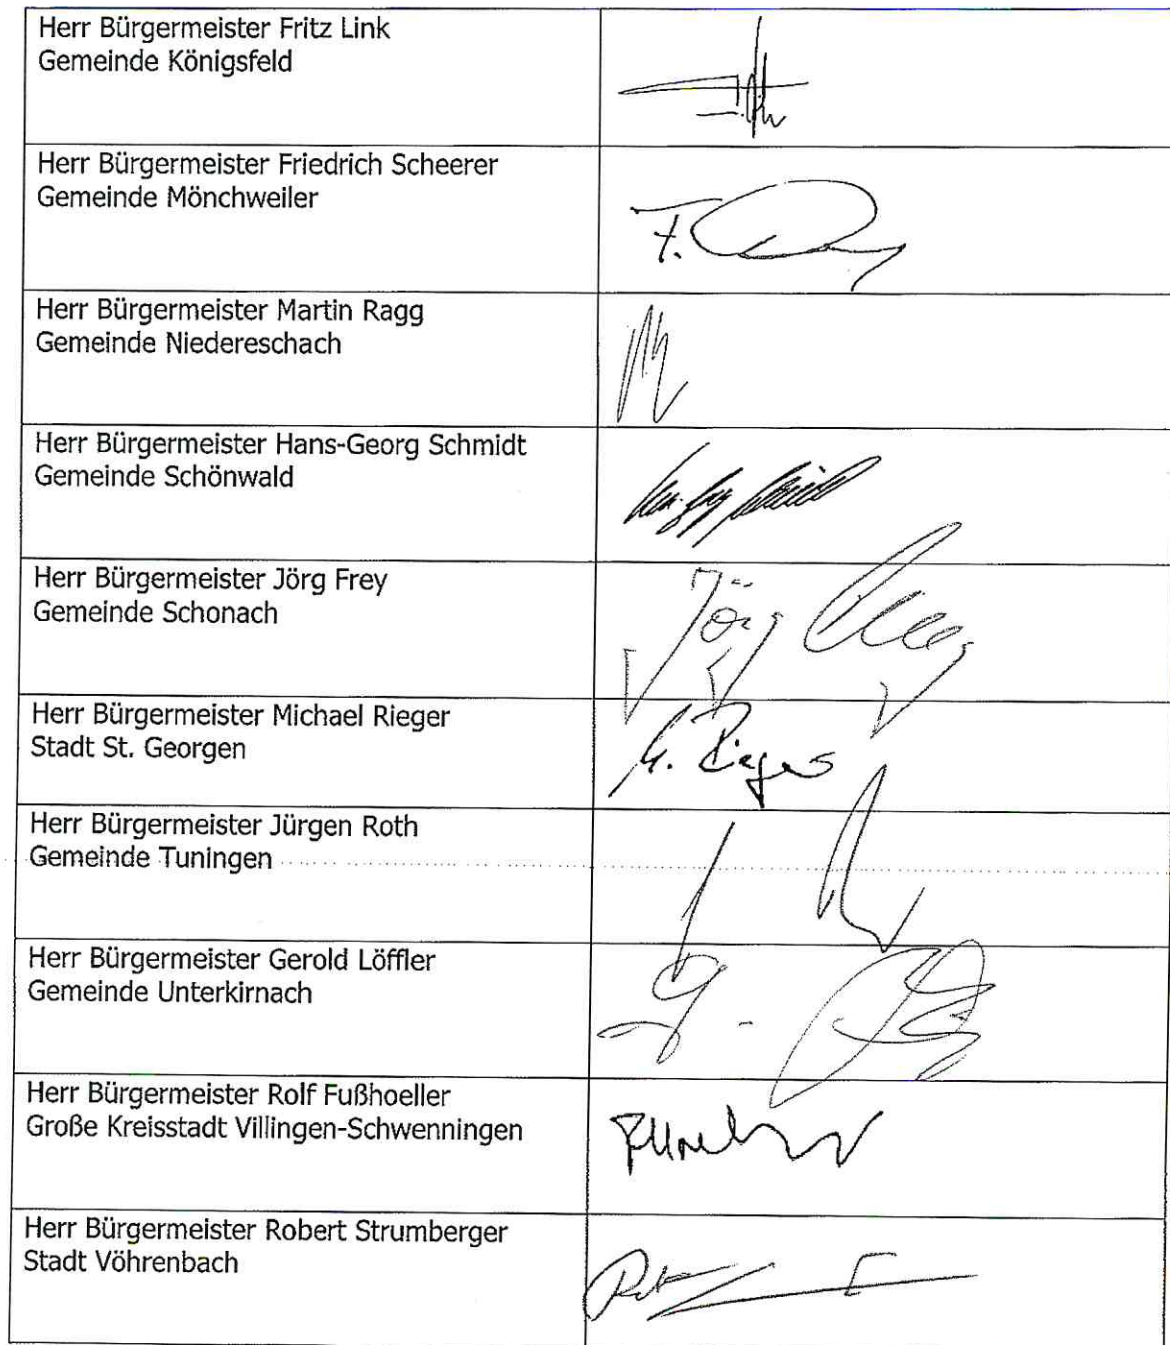 Herr Bürgermeister Fritz Link
Gemeinde Königsfeld
Herr Bürgermeister Friedrich Scheerer
Gemeinde Mönchweiler
F.
Herr Bürgermeister Martin Ragg
Gemeinde Niedereschach
Herr Bürgermeister Hans-Georg Schmidt
Gemeinde Schönwald
Herr Bürgermeister Jörg Frey
Gemeinde Schonach
Jörg Frey
Herr Bürgermeister Michael Rieger
Stadt St. Georgen
M. Rieger
Herr Bürgermeister Jürgen Roth
Gemeinde Tuningen
Herr Bürgermeister Gerold Löffler
Gemeinde Unterkirnach
Herr Bürgermeister Rolf Fußhoeller
Große Kreisstadt Villingen-Schwenningen
Herr Bürgermeister Robert Strumberger
Stadt Vöhrenbach